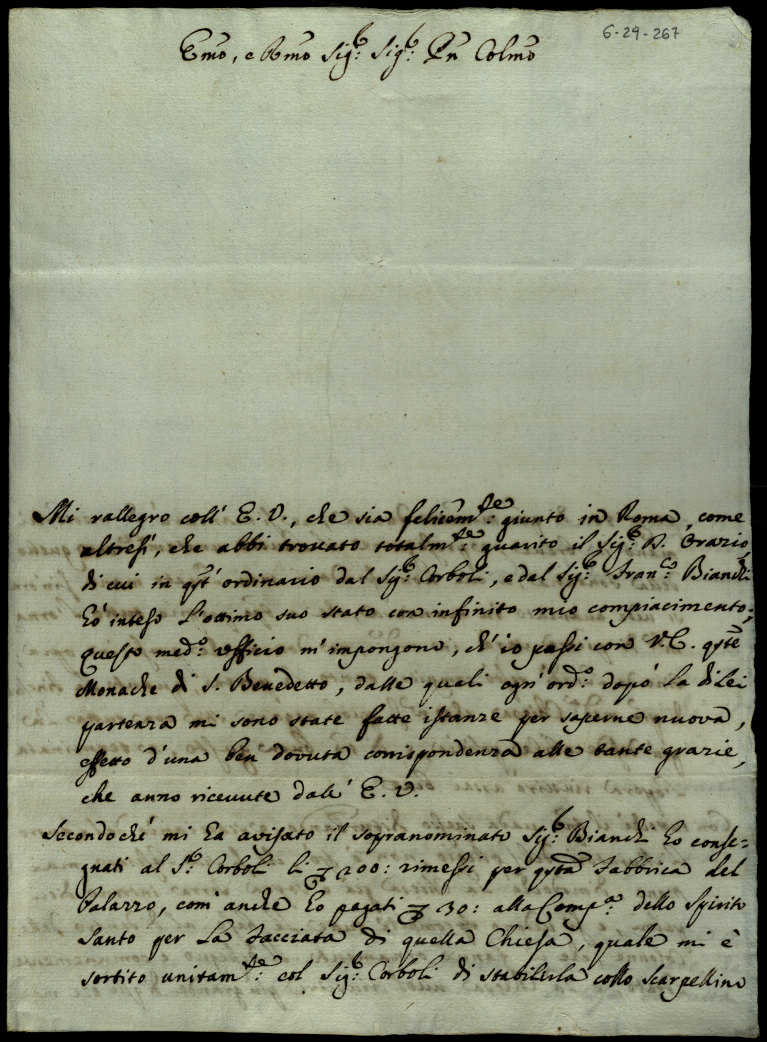 6-29-267
Emo, e Rmo Sigr: Sigr: Pn Colmo
Mi rallegro coll' E. V., che sia felicemte: giunto in Roma, come
altresì, che abbi trovato totalmte: guarito il Sigr: D. Orazio,
di cui in qst' ordinario dal Sigr: Corboli, e dal Sigr: Franco: Bianchi
hò inteso l'ottimo suo stato con infinito mio compiacimento;
questo medo: ufficio m'impongono, ch'io passi con V. E. qste
Monache di S. Benedetto, dalle quali ogn' ordo: dopò la di Lei
partenza mi sono state fatte istanze per saperne nuova,
effetto d'una ben dovuta corrispondenza alle tante grazie,
che anno ricevute dall' E. V.
Secondoché mi ha avisato il sopranominato Sigr: Bianchi ho conse=
gnati al Sr: Corboli li 200: rimessi per qsta Fabbrica del
Palazzo, com' anche ho pagati 30: alla Compa: dello Spirito
Santo per la Facciata di quella Chiesa, quale mi è
sortito unitamte: col Sigr: Corboli di stabilirla collo Scarpellino